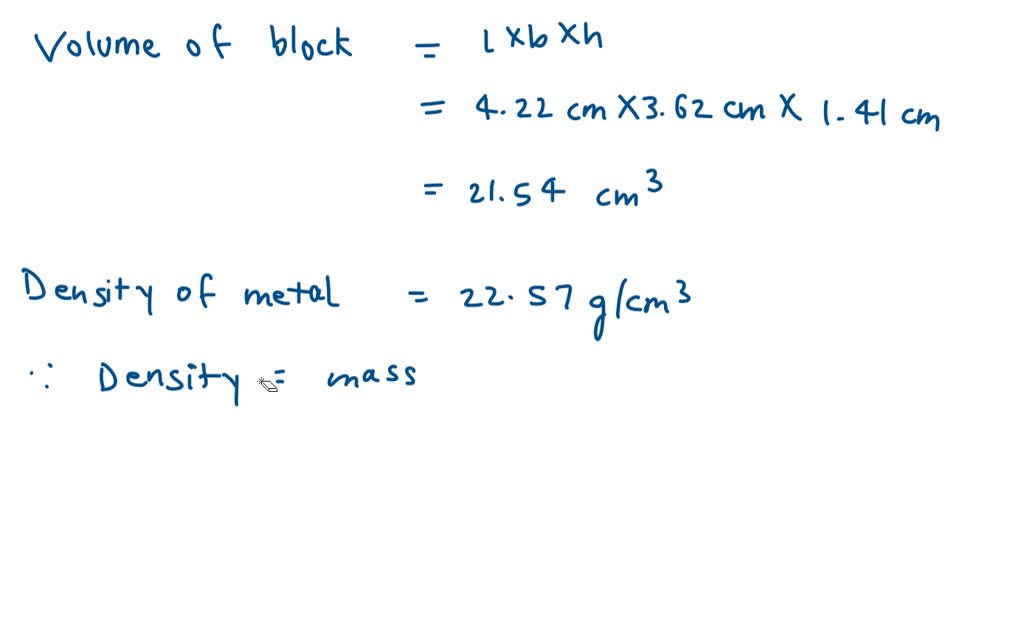 Volume of block = l×b×h
= 4.22 cm ×3.62 cm × 1.41 cm
= 21.54 cm³
Density of metal = 22.57 g/cm³
∵ Density = mass